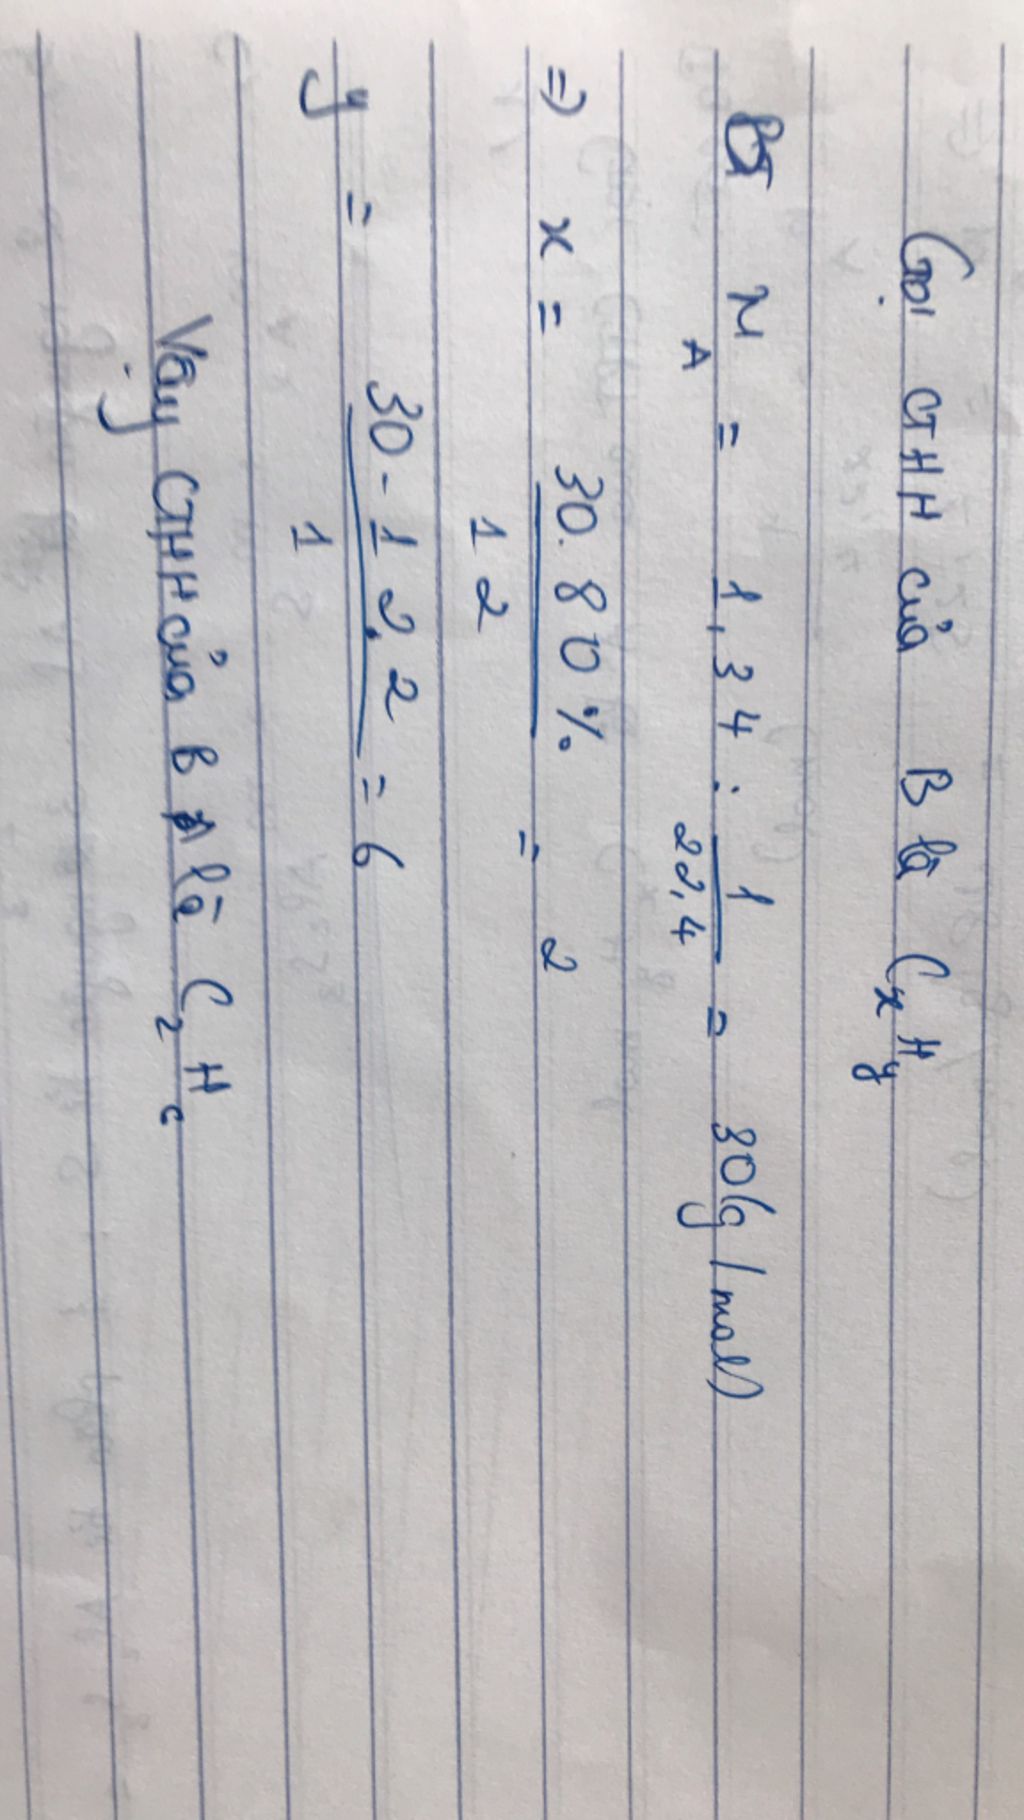 Gọi CTHH của B là CxHy
M A = 1,34 : 1/22,4 = 30 (g/mol)
=> x = 30.80%/12 = 2
y = 30-12.2/1 = 6
Vậy CTHH của B là C2H6